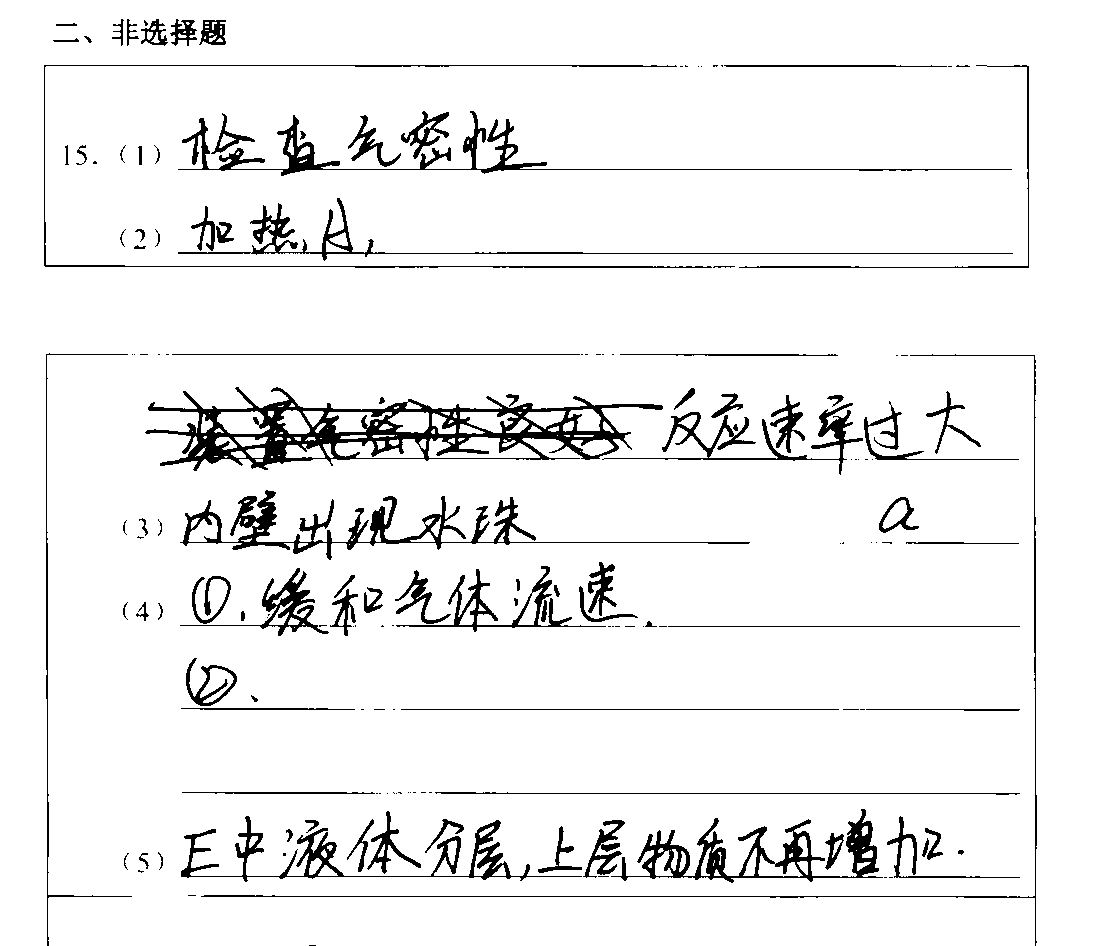 二、非选择题
15.（1）检查气密性
（2）加热A,
装置气密性良好 反应速率过大
（3）内壁出现水珠 a
（4）①.缓和气体流速.
②、
（5）E中液体分层,上层物质不再增加.